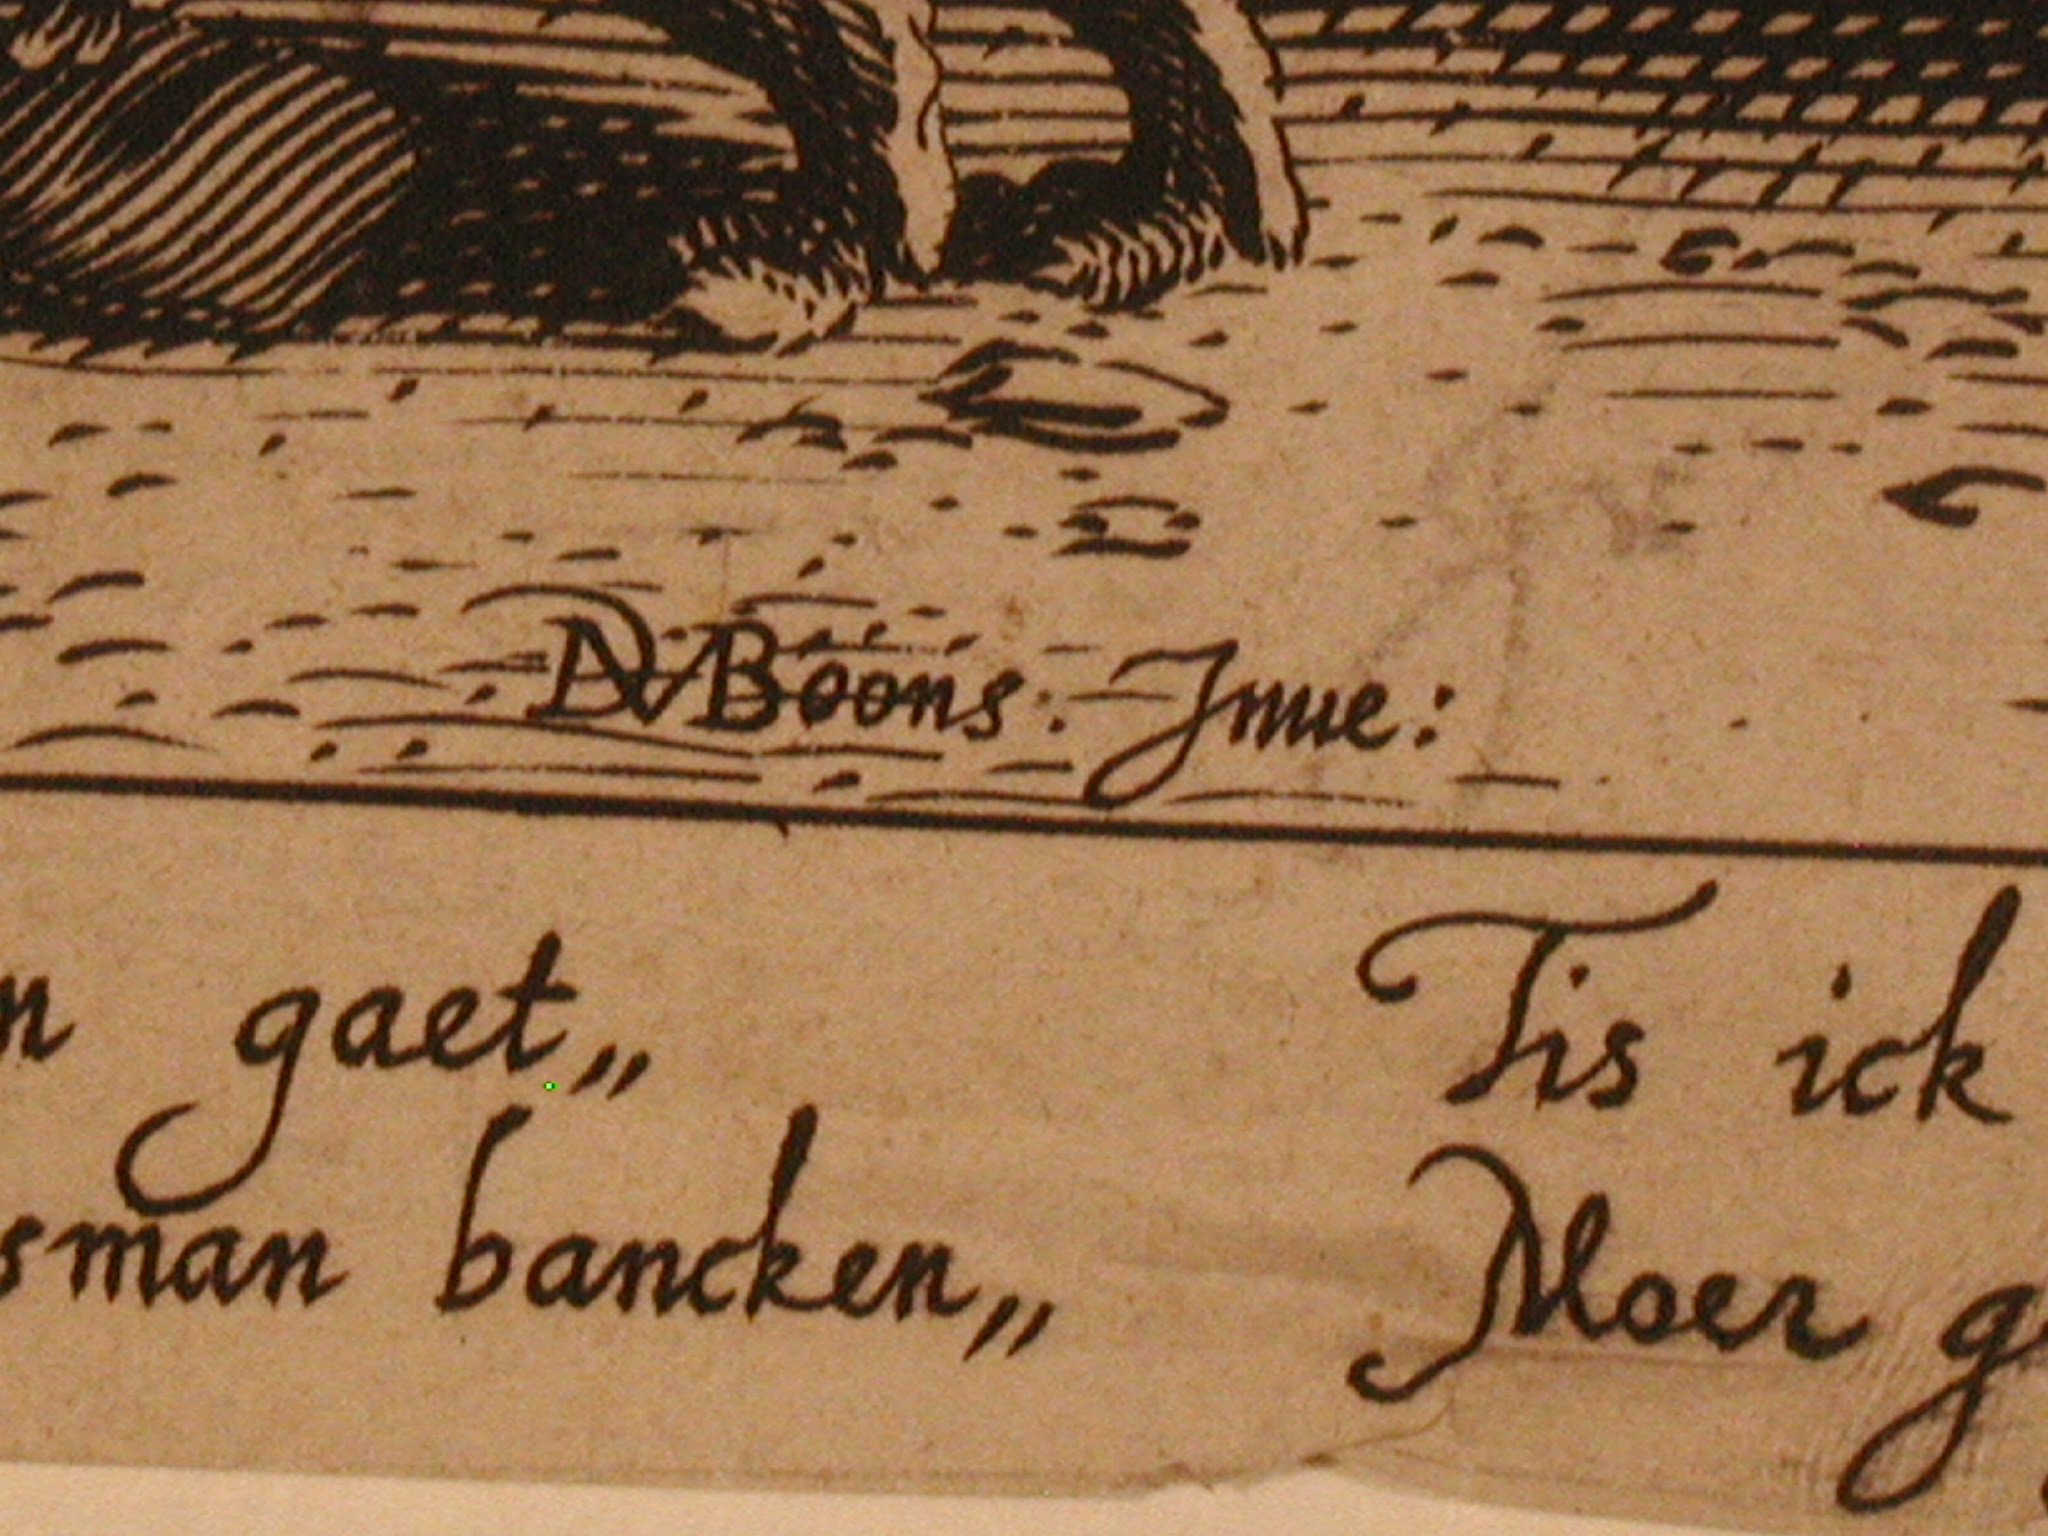 DVBoons. Jnue:
n gaet„ Tis ick
sman bancken„ Moer g